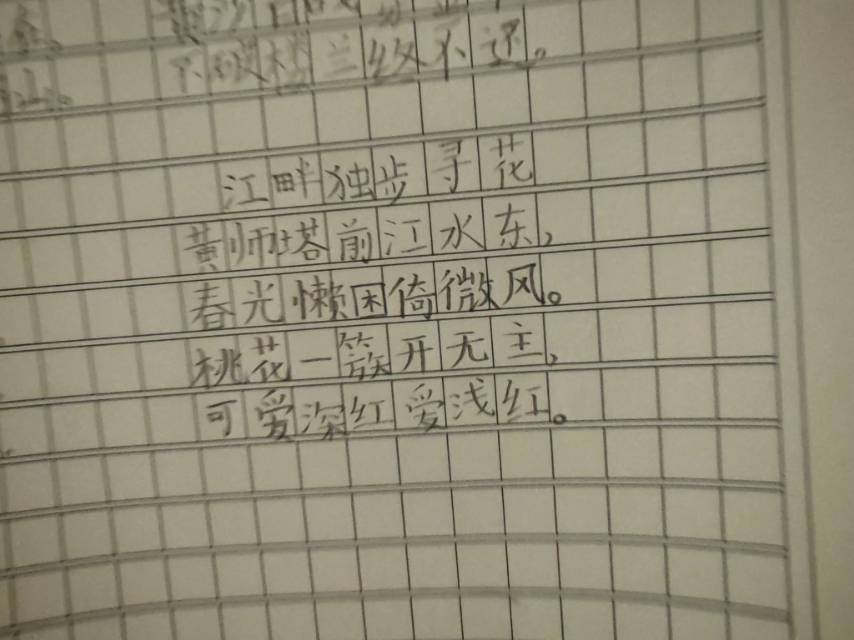 不破楼兰终不还。
江畔独步寻花
黄师塔前江水东,
春光懒困倚微风。
桃花一簇开无主,
可爱深红爱浅红。